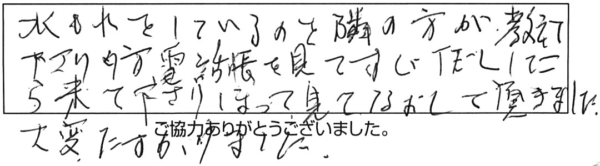 水もれをしているのを隣の方が教えて
下さり内方電話帳を見てすぐTELしてに
ら来て下さりほって見てなおして頂きました
大変たすかりました。
ご協力ありがとうございました。